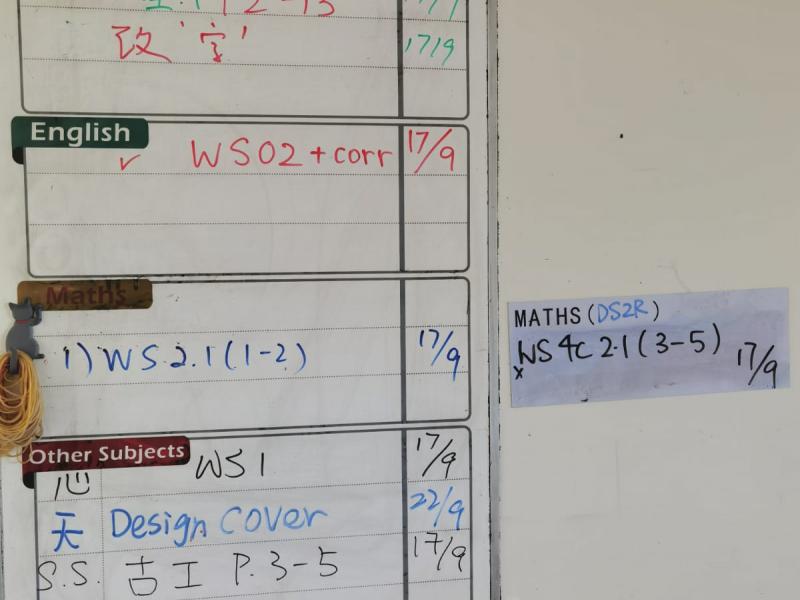 改 '官' 17/9
English
✓ WS02+corr 17/9
Maths
1) WS 2.1 (1-2) 17/9
MATHS (DS2R)
WS 4C 2.1 (3-5) 17/9
x
Other Subjects
心 WS1 17/9
天 Design cover 22/9
S.S. 古工 P.3-5 17/9